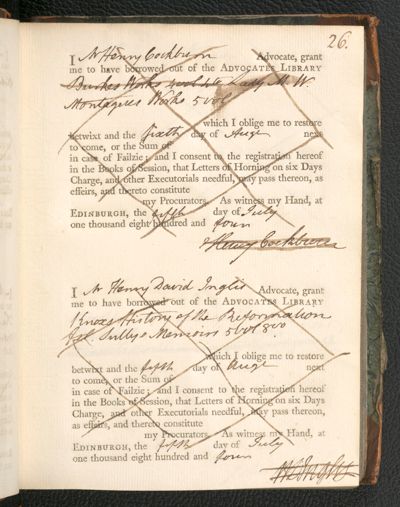 26.
I Mr Henry Cockburn Advocate, grant
me to have borrowed out of the ADVOCATES LIBRARY
Burkes Works Lady M. W.
Montagues Works 5 vol
which I oblige me to restore
betwixt and the sixth day of Augt next
to come, or the Sum of
in case of Failzie; and I consent to the registration hereof
in the Books of Session, that Letters of Horning on six Days
Charge, and other Executorials needful, may pass thereon, as
effeirs, and thereto constitute
my Procurators. As witness my Hand, at
EDINBURGH, the fifth day of July
one thousand eight hundred and four
Henry Cockburn
I Mr Henry David Inglis Advocate, grant
me to have borrowed out of the ADVOCATES LIBRARY
Knox's History of the Reformation
fol. Sully's Memoirs 5 vol 8vo.
which I oblige me to restore
betwixt and the fifth day of Augt next
to come, or the Sum of
in case of Failzie; and I consent to the registration hereof
in the Books of Session, that Letters of Horning on six Days
Charge, and other Executorials needful, may pass thereon,
as effeirs, and thereto constitute
my Procurators. As witness my Hand, at
EDINBURGH, the fifth day of July
one thousand eight hundred and four